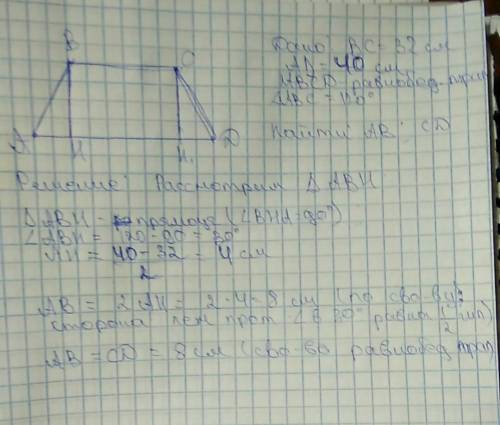 B
C
A
H
H₁
D
Дано: BC = 32 см
AD = 40 см
ABCD - равнобед. трап
∠ABC = 120°
Найти AB; CD
Решение: Рассмотрим Δ ABH
Δ ABH - прямоуг (∠BHA = 90°)
∠ABH = 120 - 90 = 30°
AH = 40 - 32 / 2 = 4 см
AB = 2AH = 2 · 4 = 8 см (по св-ву:
сторона леж прот ∠ в 30° равна 1/2 гип)
AB = CD = 8 см (св-во равнобед трап)